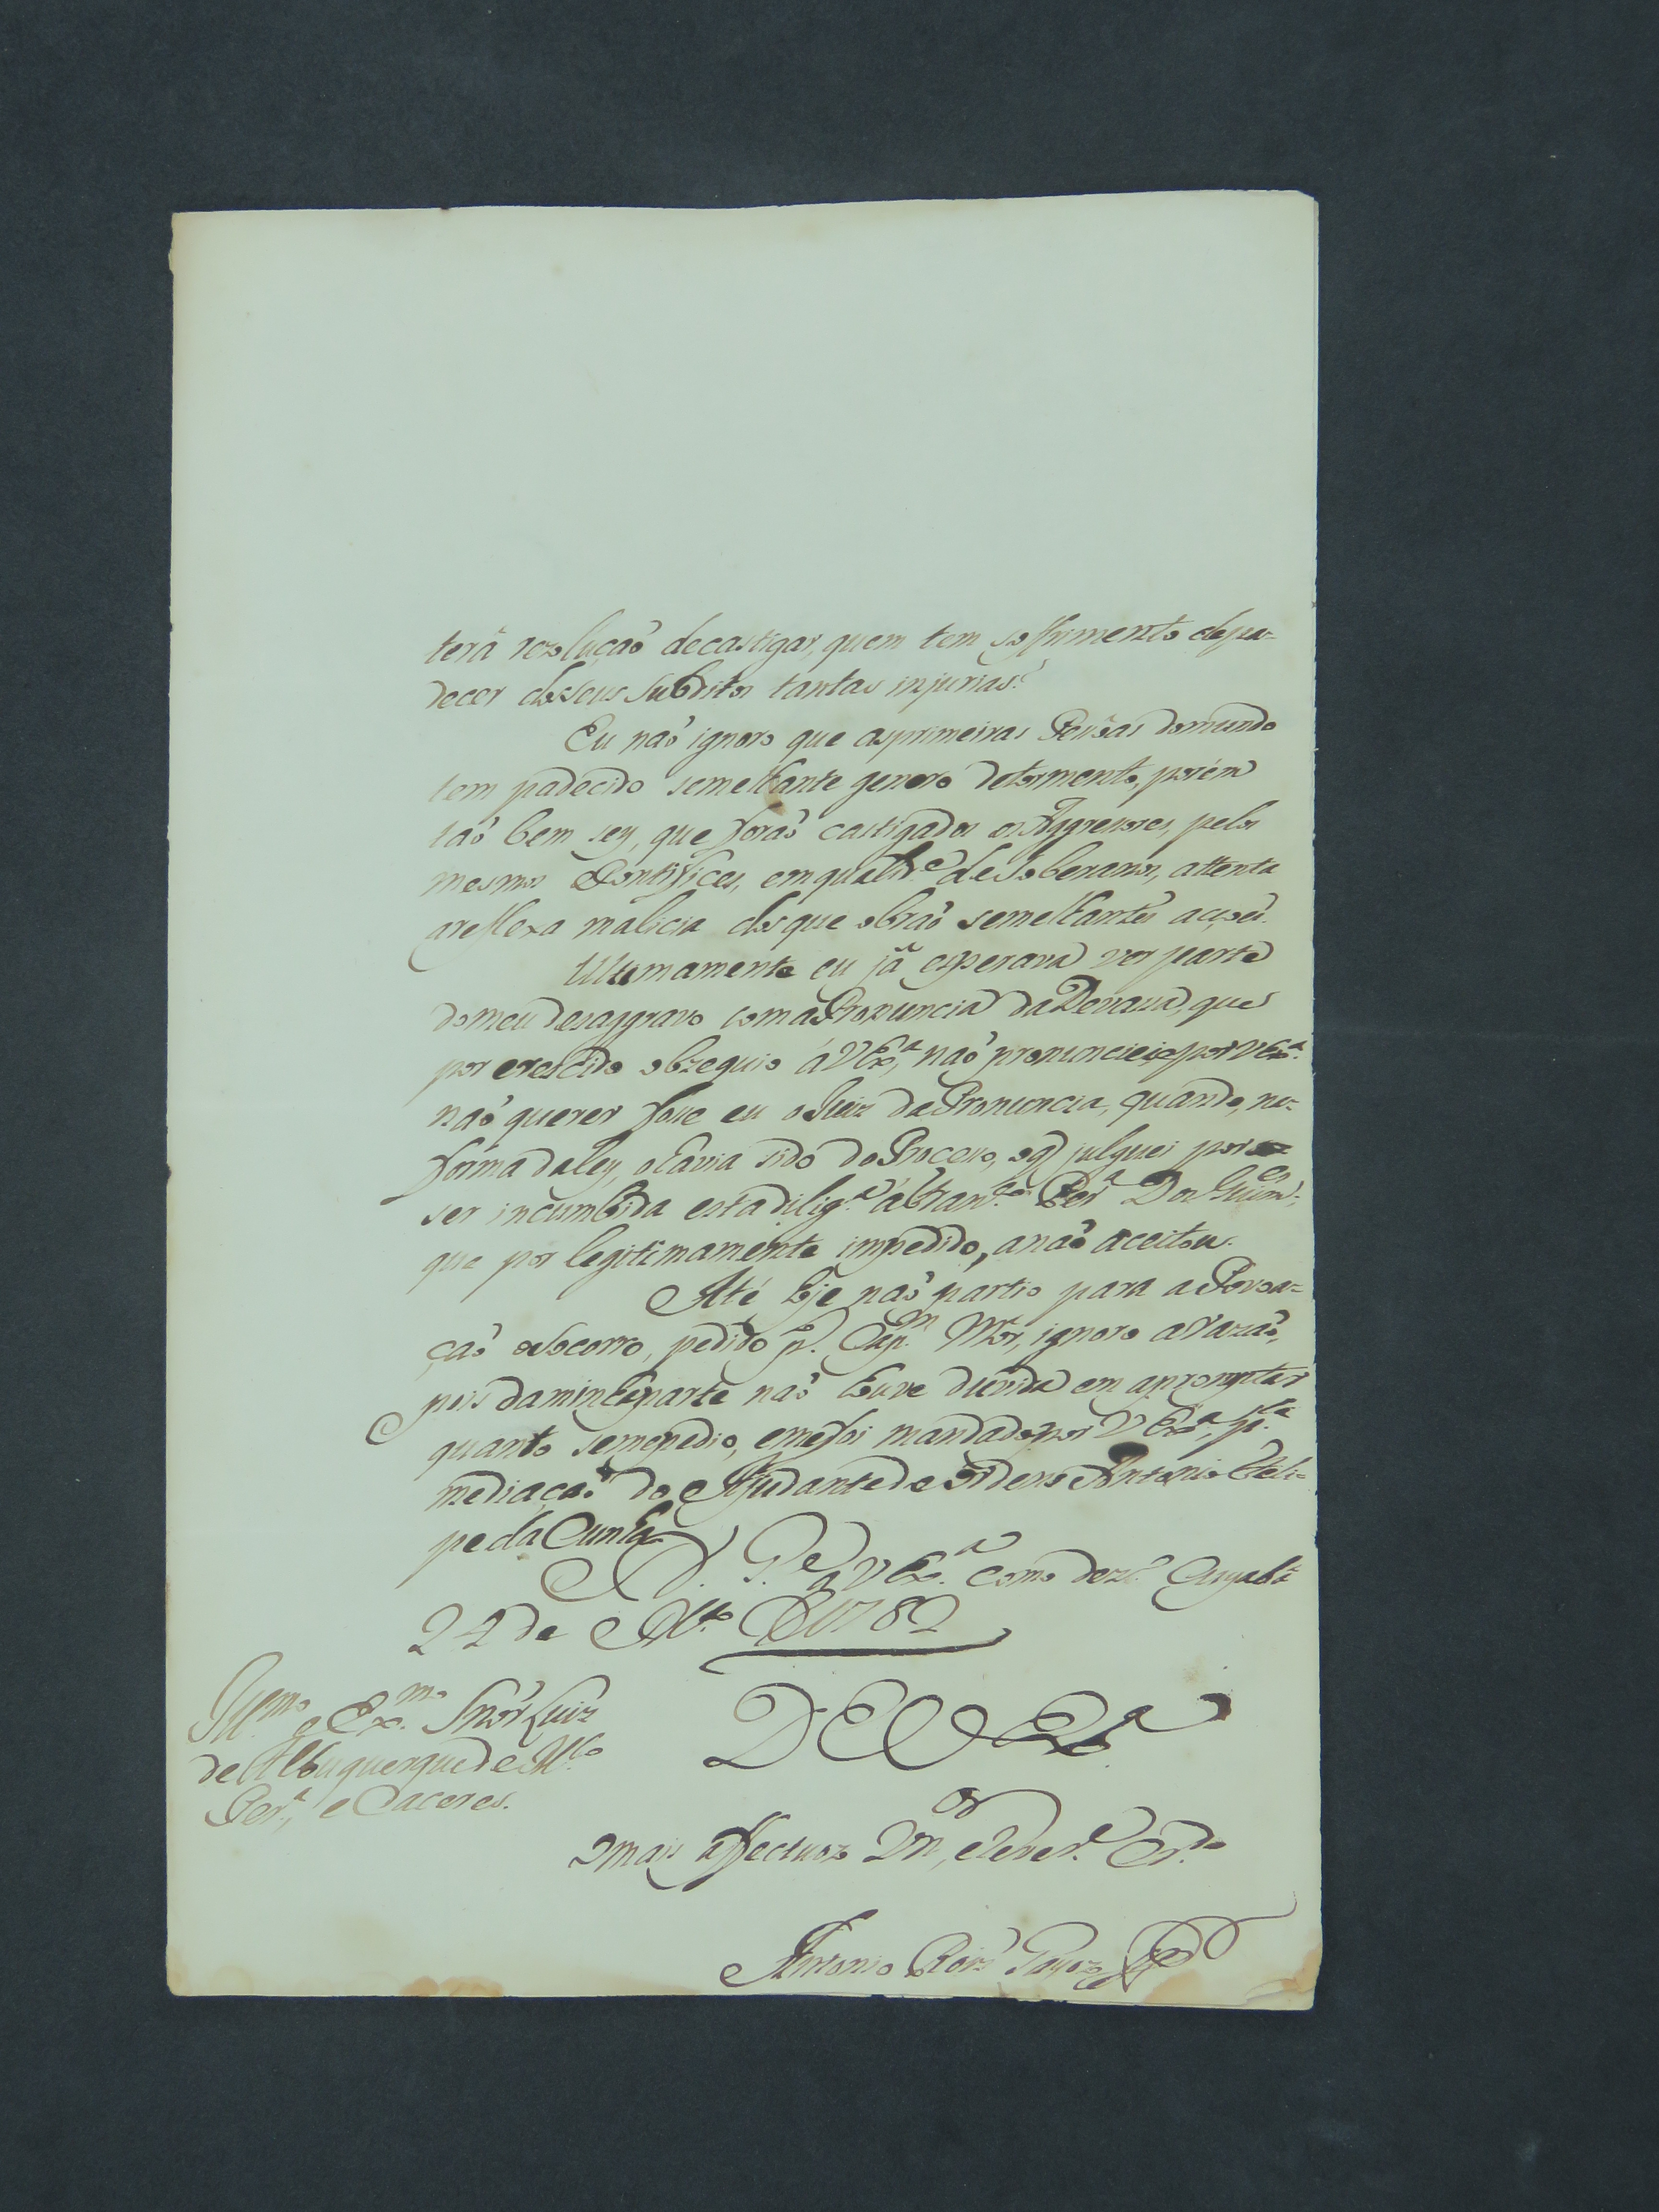 terá rezolução decastigar, quem tem soffrimento depa-
decer dosseus Subditos tantas injurias?
Eu naõ ignoro que asprimeiras Pessoas domundo
tem padecido semelhante genero detormento, porém
taõ bem sey, que foraõ castigados os Aggressores, pelos
mesmos Pontifices, emqualid.e deSoberanos, attenta
areflexa malicia dosque obraõ semelhantes acçoes.
Ultimamente eu já esperava ver parte
domeu desaggravo comaPronuncia daDevassa, que
por crescido obzequio á V Ex.a, naõ pronunciei, e por V Ex.a
naõ querer fosse eu oJuiz daPronuncia, quando, na
fórma daLey, o havia sido doProcesso, oq julguei por
ser incumbida estadilig.a
que por legitimamente impedido, anaõ aceitou.
Até hoje naõ partio para aPovoa-
çaõ oSocorro, pedido p.lo Cap.m Mór, ignoro aRazaõ,
pois daminhaparte naõ houve duvida em apromptar
quanto semepedio, emefoi mandado por V Ex.a, p.la
mediaçaõ do Ajudante de Ordens Antonio Feli-
pe da Cunha.
D.s G.e a V Ex.a como dez.o Cuyabá
24 de Ag.to D 1782
Ill.mo e Ex.mo Snõr Luiz
de Albuquerque de M.lo
Per.a, e Caceres.
DE V Ex.a
omais affectuozo V.or, eRever.e Cr.do
Antonio Roiz Gayozo